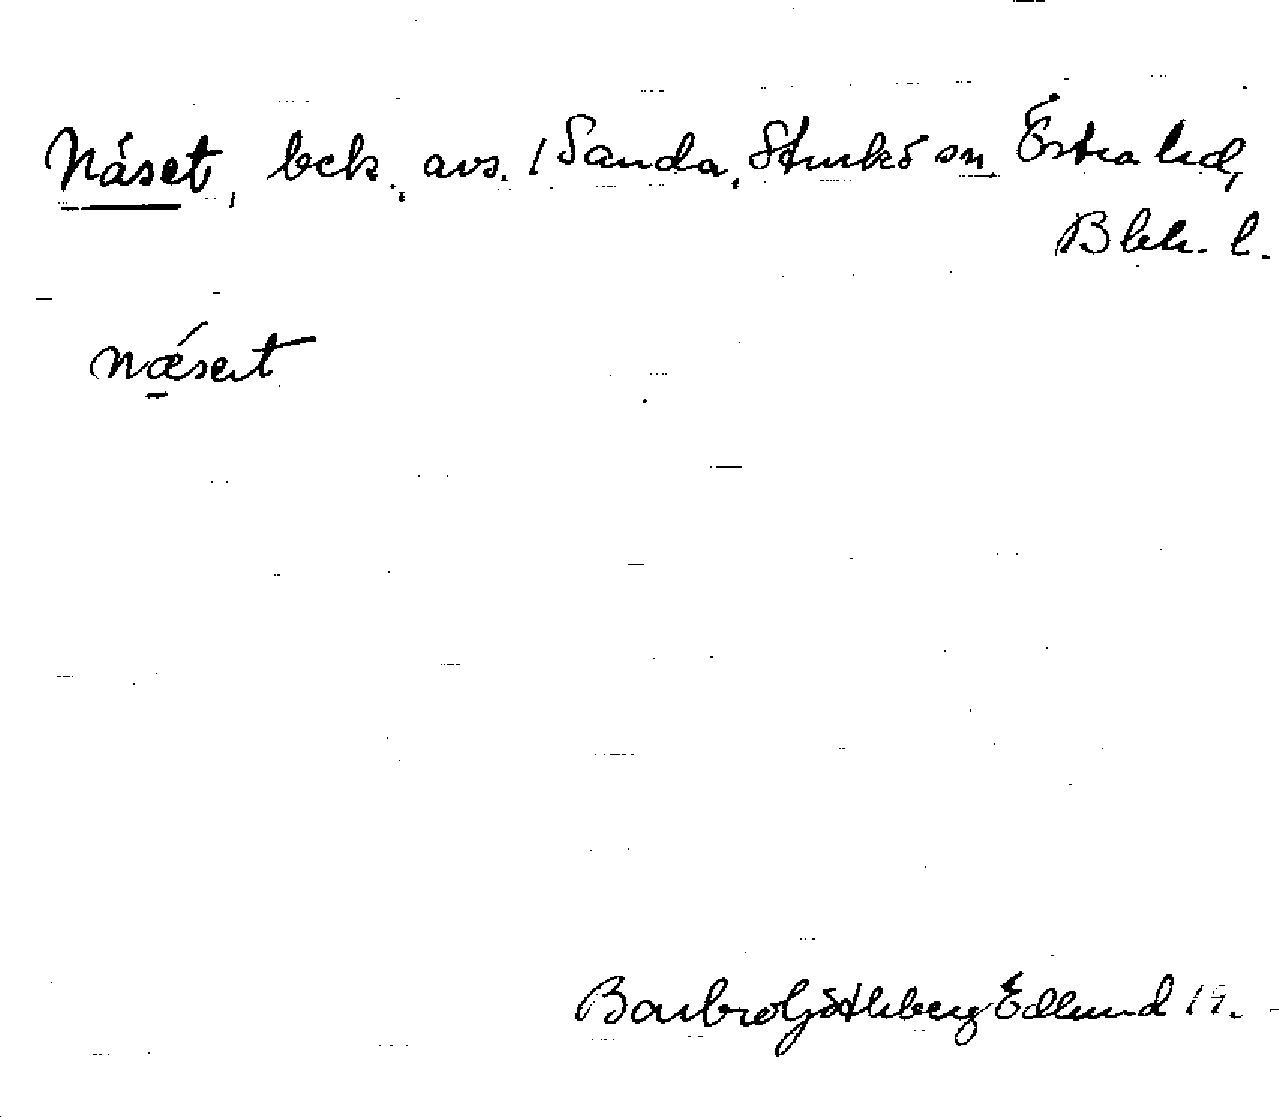 Näset, bck., avs. / Sanda, Sturkö sn, Östra hd,
Blek. l.
nǽ̱set
Barbro Götheberg Edlund 19